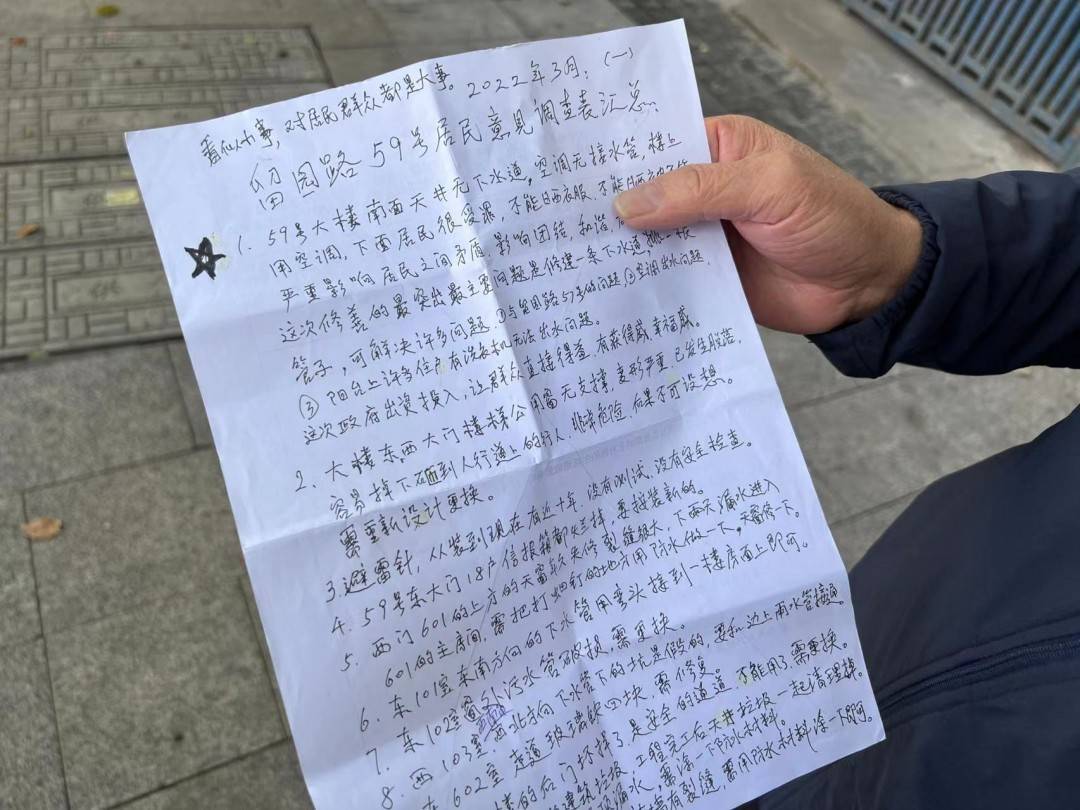 看似小事,对居民群众都是大事。2022年3月:(一)
留园路59号居民意见调查表汇总
1. 59号大楼南面天井无下水道,空调无接水管,楼上
用空调,下面居民很受潮,不能晒衣服,不能
严重影响居民之间矛盾,影响团结,和谐,
这次修善的最突出最主要问题是修建一条下水道,
管子,可解决许多问题:①与留园路57号的问题,②空调出水问题,
③阳台上许多住户有洗衣机无法出水问题。
这次政府出资摸入,让群众直接得益,有获得感,幸福感。
2. 大楼东西大门楼梯公用窗无支撑,变形严重,已发生脱落,
容易掉下砸到人行道上的行人,非常危险,后果不可设想。
需重新设计更换。
3. 避雷针,从装到现在有近十年,没有测试,没有安全检查。
4. 59号东大门18户信报箱都烂掉,要按装新的。
5. 西门601的上方的天窗年久失修,裂缝很大,下雨天漏水进入
601的主房间,需把打烟钉的地方用防水做一下,天窗修一下。
6. 东101室东南方向的下水管用弯头接到一楼房面上即可。
7. 东102室窗外污水管破损,需更换。
8. 西103室西北方向下水管下的坑是假的,要和边上雨水管接通。
东602室走道玻璃缺四块,需修复。
楼的后门坏掉了,是安全的通道,不能用了,需更换。
建筑垃圾,工程完工后天井垃圾一起清理掉。
漏水,需涂一下防水材料。
有裂缝,需用防水材料涂一下即可。